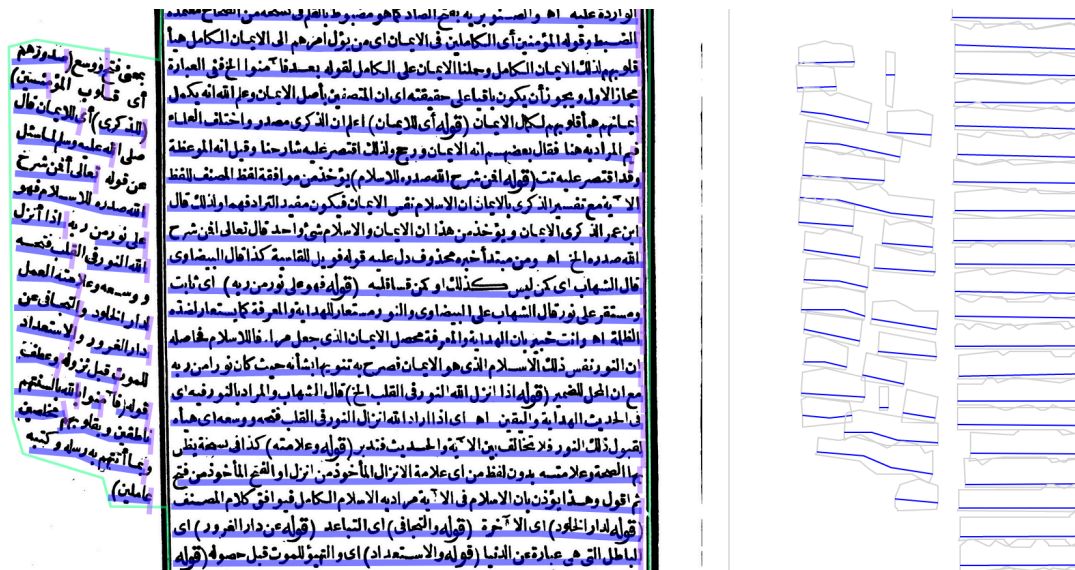 الواردة عليه اه والصدر يريد بفتح الصاد كما هو مضبوط بالقلم في نسخة من الصحاح معتمدة
القسط وقوله المؤمنين أى الكاملين فى الايمان اى من يؤل أمرهم الى الايمان الكامل هيأ
قلوبهم لذلك الايمان الكامل وحملنا الايمان على الكامل لقوله بعد فا ٓمنوا الخ ففى العبارة
مجاز الاول ويجوز أن يكون باقيا على حقيقته اى ان المتصفين بأصل الايمان وعلم الله انه يكمل
ايمانهم هيأ قلوبهم لكمال الايمان (قوله أى للايمان) اعلم ان الذكرى مصدر واختلف العلماء
فيم المراد به هنا فقال بعضهم انه الايمان ورجح ولذلك اقتصر عليه شارحنا وقيل انه الموعظة
وقد اقتصر عليه تت (قوله افمن شرح الله صدره للاسلام) يؤخذ من موافقة لفظ المصنف للفظ
الا ٓية مع تفسير الذكرى بالايمان ان الاسلام نفس الايمان فيكون مفيد الترادفهما ولذلك قال
ابن عمر الذكرى الايمان ويؤخذ من هذا ان الايمان والاسلام شئ واحد قال تعالى افمن شرح
الله صدره الخ اه ومن مبتدأ خبره محذوف دل عليه قوله فويل للقاسية كذا قال البيضاوى
قال الشهاب اى كمن ليس كذلك او كمن قسا قلبه (قوله فهو على نور من ربه) اى ثابت
ومستقر على نور قال الشهاب على البيضاوى والنور مستعار للهداية والمعرفة كما يستعار لضده
الظلمة اه وانت خبير بان الهداية والمعرفة محصل الايمان الذى جعل مرادفا للاسلام فحاصله
ان النور نفس ذلك الاسلام الذى هو الايمان فصرح به تنويها بشأنه حيث كان نورا من ربه
مع ان المحل للضمير (قوله اذا انزل الله النور فى القلب الخ) قال الشهاب والمراد بالنور فيه اى
فى الحديث الهداية واليقين اه اى اذا اراد الله انزال النور فى القلب فتحه ووسعه اى هيأه
لقبول ذلك النور فلا تخالف بين الا ٓية والحديث فتدبر (قوله وعلامته) كذا فى نسخة يظن
بها الصحة وعلامته بدون لفظ من اى علامة الانزال المأخوذ من انزل او الفتح المأخوذ من فتح
ثم اقول وهذا يؤذن بان الاسلام فى الا ٓية مراد به الاسلام الكامل فيوافق كلام المصنف
(قوله لدار الخلود) اى الا ٓخرة (قوله والتجافى) اى التباعد (قوله عن دار الغرور) اى
الباطل التى هى عبارة عن الدنيا (قوله والاستعداد) اى والتهيؤ للموت قبل حصوله (قوله
بمعنى فتح ووسع (صدورهم
أى قلوب المؤمنين)
(للذكرى) أى للايمان قال
صلى الله عليه وسلم لما سئل
عن قوله تعالى أفمن شرح
الله صدره للاسلام فهو
على نور من ربه اذا أنزل
الله النور فى القلب فتحه
ووسعه وعلامته العمل
لدار الخلود والتجافى عن
دار الغرور والاستعداد
للموت قبل نزوله وعطف
قوله (فا ٓمنوا بالله بألسنتهم
ناطقين وبقلوبهم مخلصين
وبما أتتهم به رسله وكتبه
عاملين)